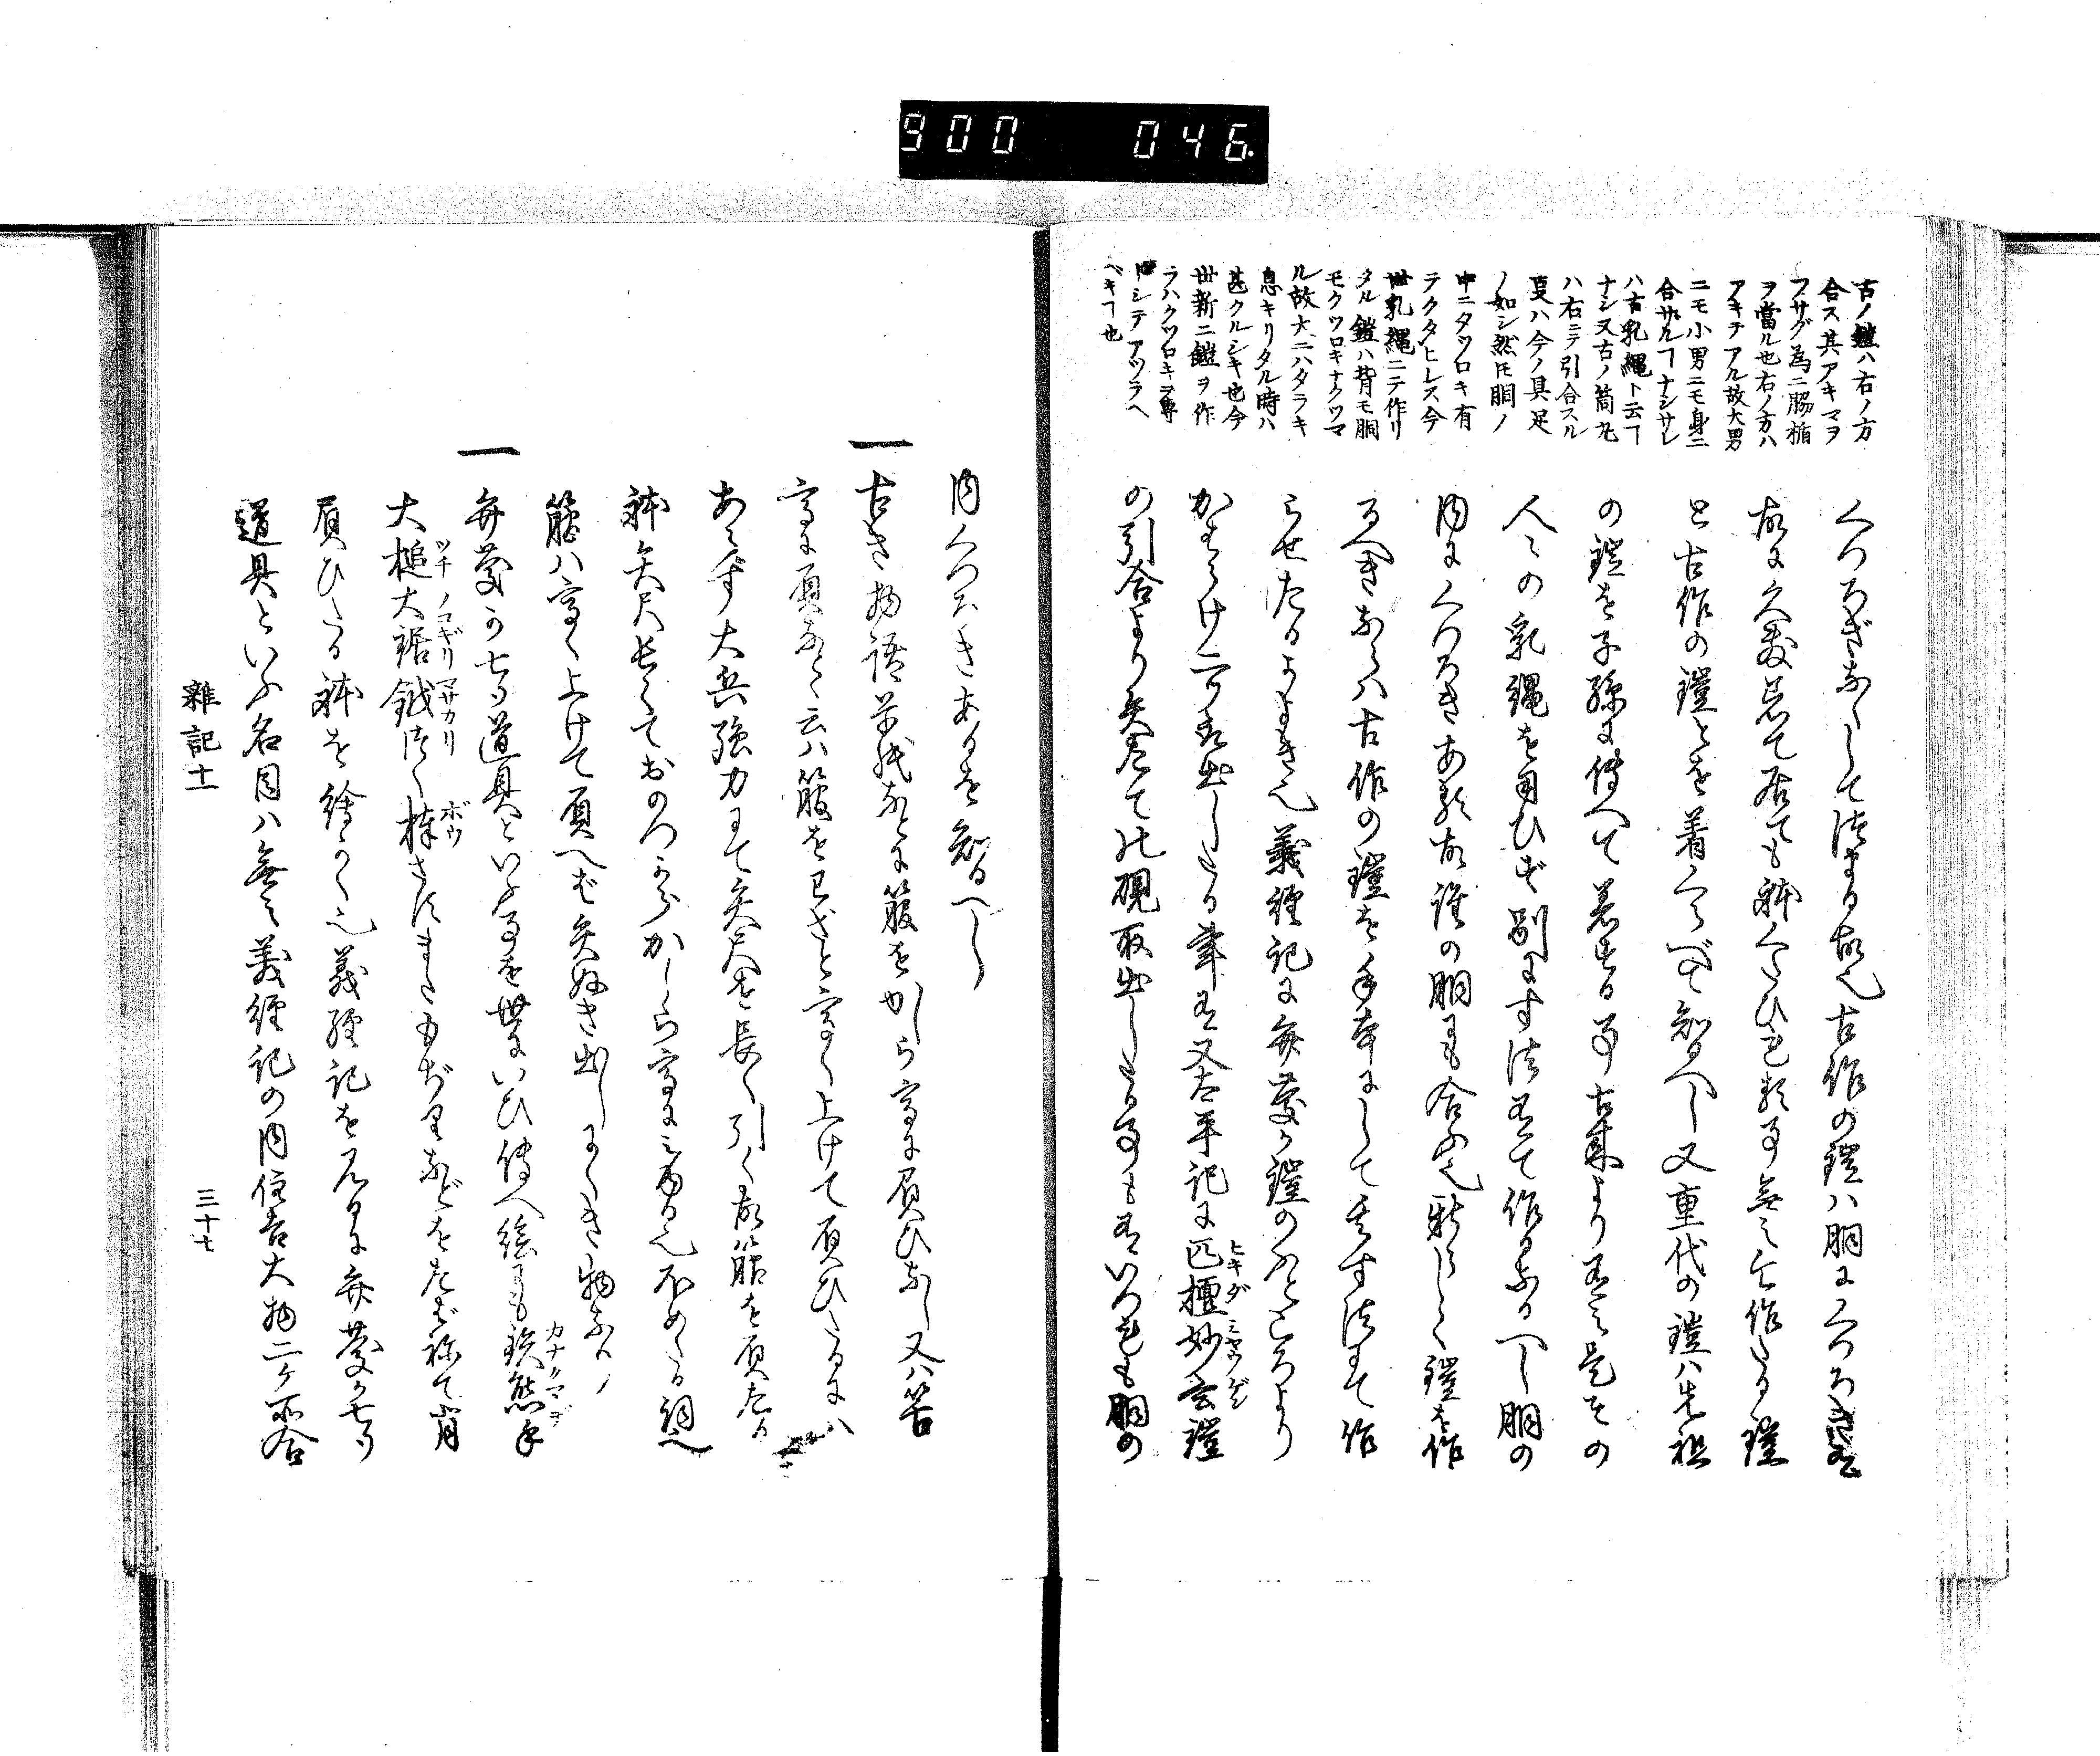 900 046
古ノ鎧ハ右ノ方
合ス其アキマヲ
フサグ為ニ脇楯
ヲ當ル也右ノ方ハ
アキテアル故大男
ニモ小男ニモ身ニ
合サルヿナシサレ
ハ古乳縄ト云ヿ
ナシ又古ノ筒丸
ハ右ニテ引合スル
叓ハ今ノ具足
ノ如シ然圧胴ノ
中ニクツロキ有
テクタヒレス今
世乳縄ニテ作リ
タル鎧ハ背モ胴
モクツロキナクツマ
ル故大ニハタラキ
息キリタル時ハ
甚クルシキ也今
世新ニ鎧ヲ作
ラハクツロキヲ専
ニシテアツラヘ
ベキヿ也
くつろぎなくして法まる故也古作の鎧ハ胴によくつろき有
故に久敷着て居ても躰くたひれ
と古作の鎧とを着くらべて知るへし又重代の鎧ハ先祖
の鎧を子孫に傳へて着する事古来より有之是その
人々の乳縄を用ひず別に寸法有て作るなるへし胴の
内にくつろきある故誰の胴にも合ふ也新しく鎧を作
るへきならハ古作の鎧を手本にして其寸法にて作
らせたるよき也義經記に弁慶か鎧の
出したる事有又太平記に匹檀妙玄鎧
の引合より矢立て硯取出したる事も有いつれも胴の
内くつろきあるを知るへし
一 古き物語草紙などに箙をかしら高に負ひなし又ハ筈
高に負なと云ハ箙をわざと高く上けて負ひたるにハ
あらず大兵強力にて矢尺を長く引く故箭を負たる
躰矢尺長くておのつからかしら高に見ゆる也ほめたる詞也
箙ハ高く上けて負へば矢ぬき出しにくき物なり
一 弁慶か七ツ道具といふ事を世にいひ傳へ絵にも鉄熊手
大槌大鋸鉞 棒さすまたもぢりなどをたばねて背
負ひたる躰を繪かく也義経記を見るに弁慶か七ツ
道具といふ名目ハ無之義經記の内住吉大物二ケ所合
雜記十一
三十七